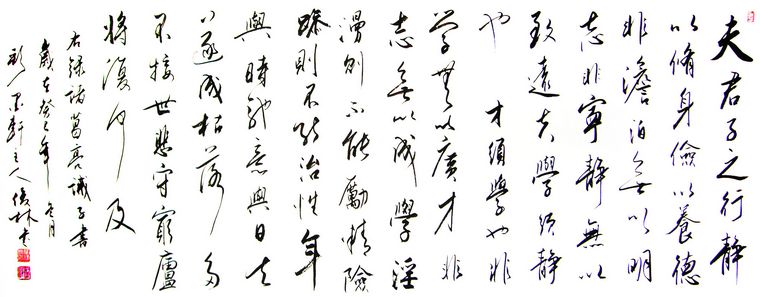 夫君子之行静
以脩身儉以養德
非澹泊無以明
志非寧静無以
致遠夫學須静
也才須學也非
學無以廣才非
志無以成學淫
漫則不能勵精險
躁則不能治性年
與時馳意與日去
遂成枯落多
不接世悲守窮廬
將復何及
右録諸葛亮誡子書
歲在癸巳年冬月
墨軒主人俊林書